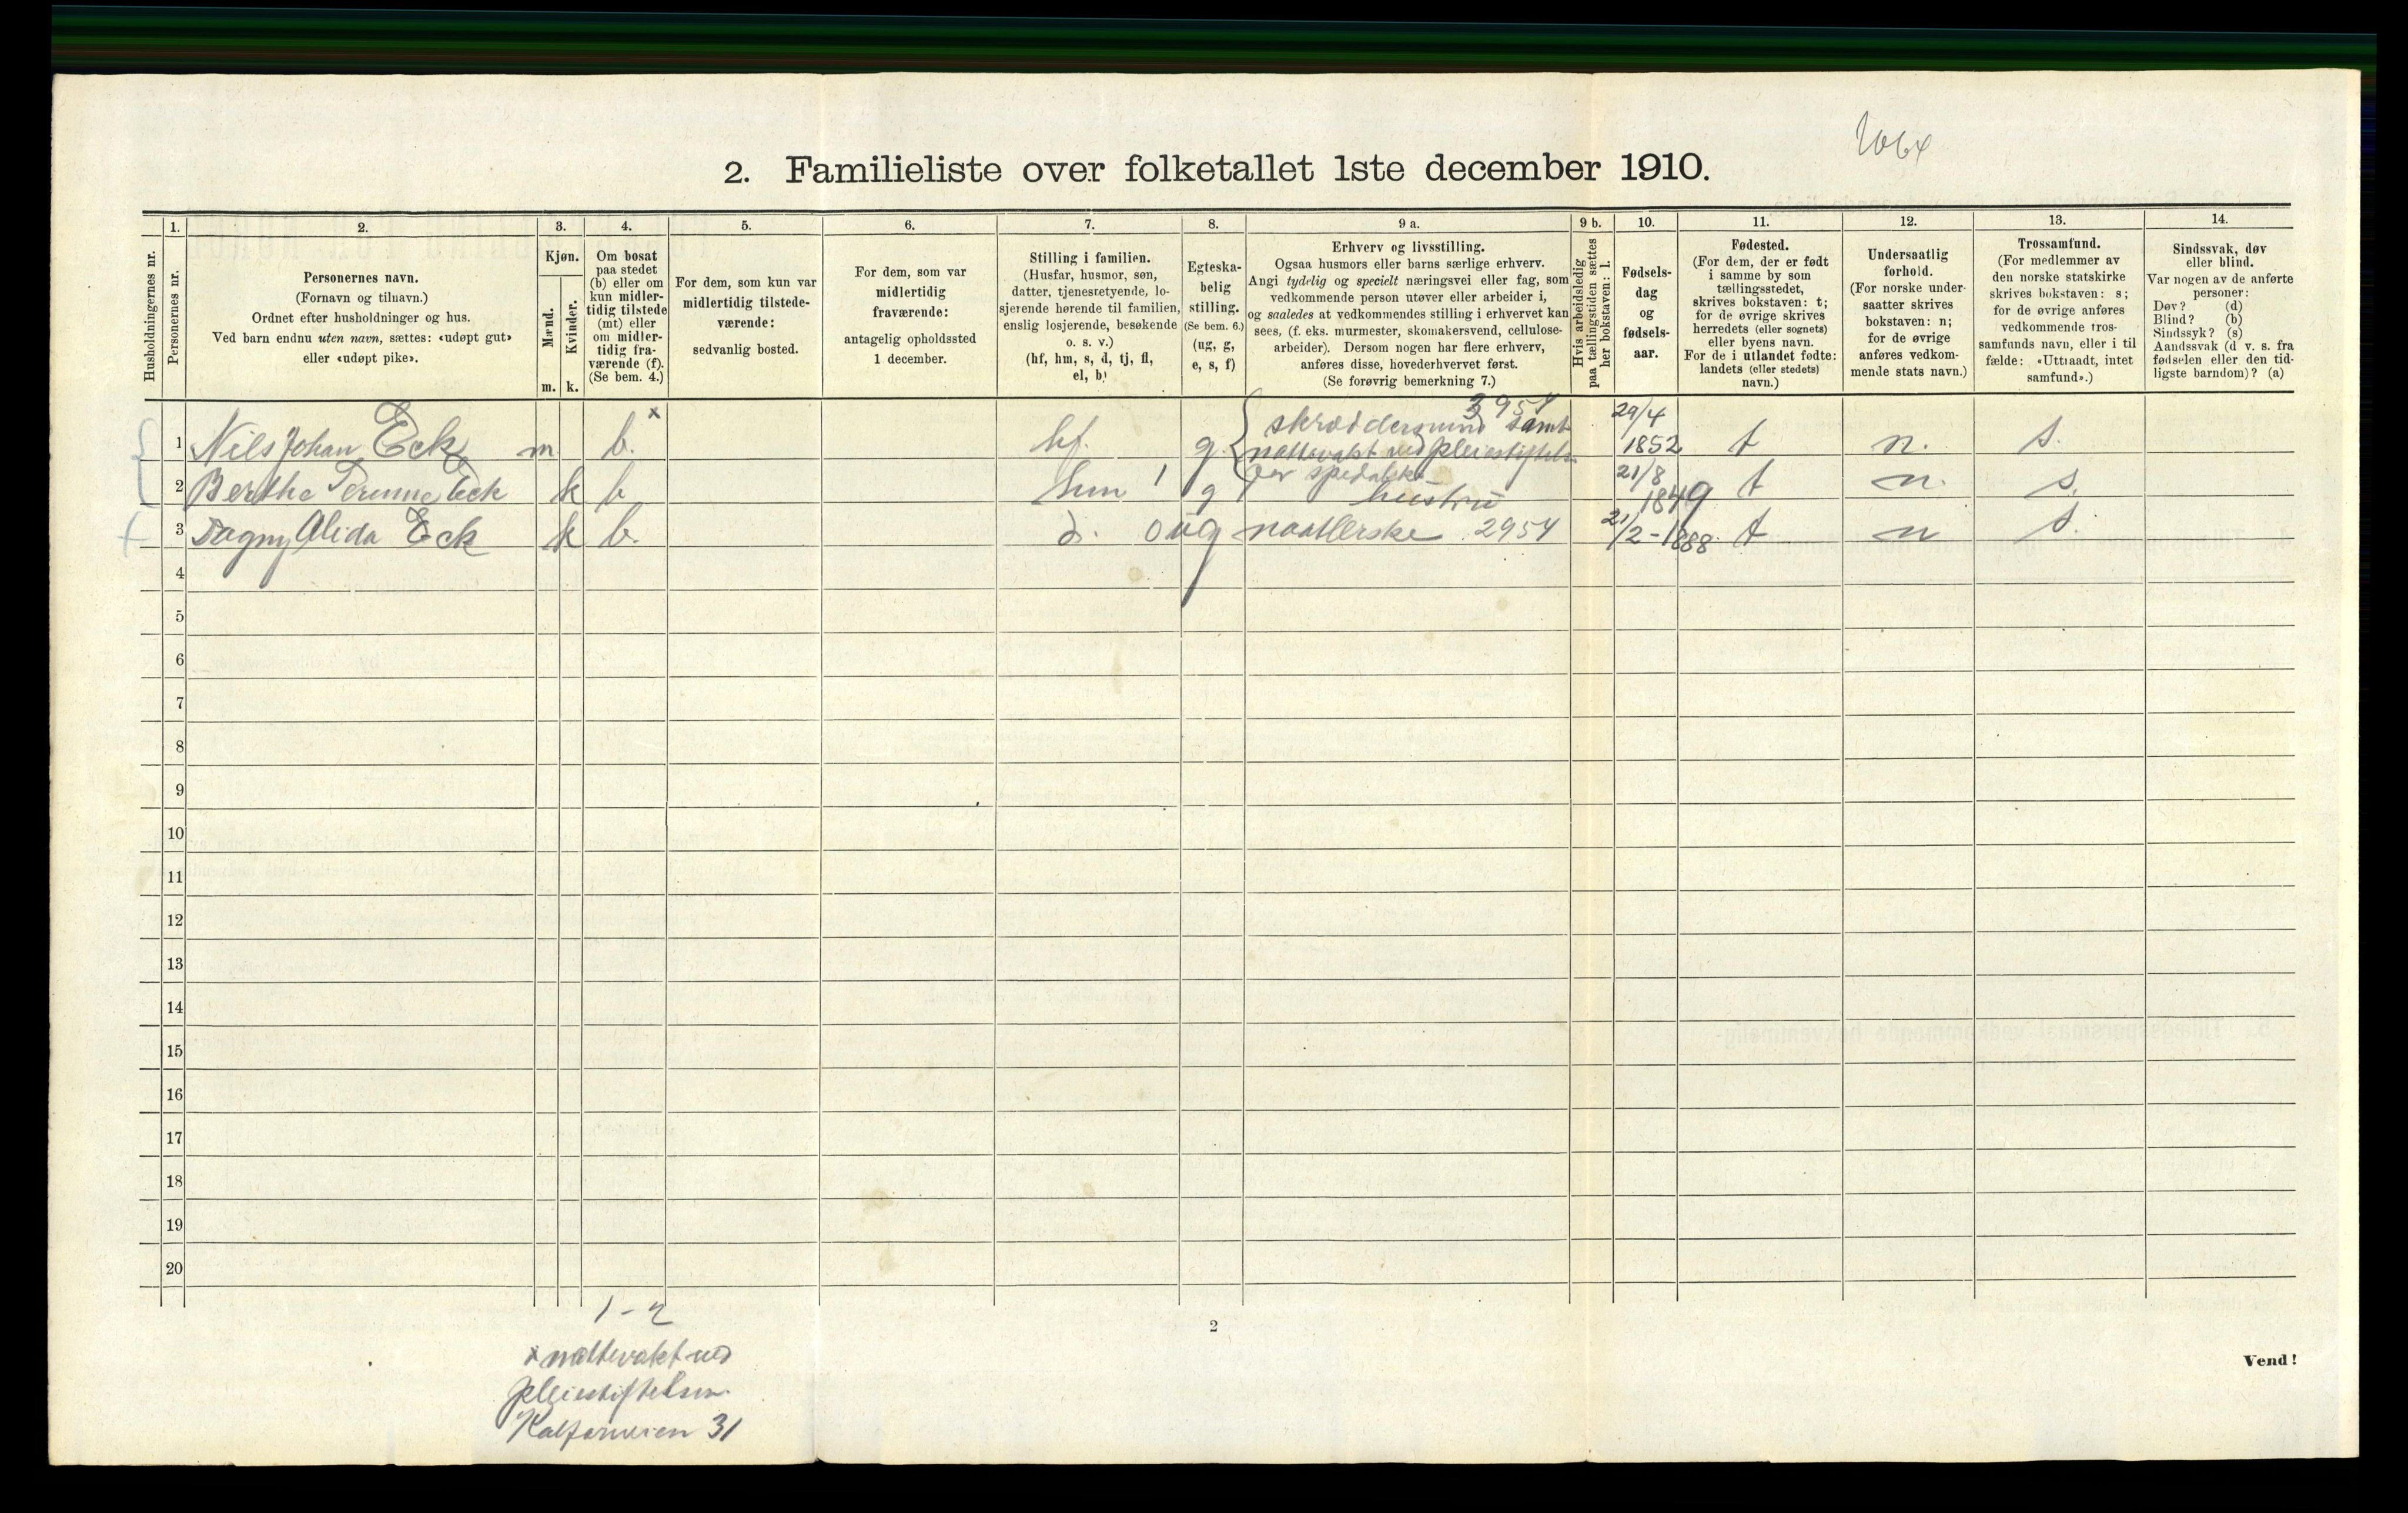 2. Familieliste over folketallet 1ste december 1910.
1. 2. 3. 4. 5. 6. 7. 8. 9 a. 9 b. 10. 11. 12. 13. 14.
Husholdningernes nr.
Personernes nr.
Personernes navn.
(Fornavn og tilnavn.)
Ordnet efter husholdninger og hus.
Ved barn endnu uten navn, sættes: «udøpt gut»
eller «udøpt pike».
Kjøn.
Mænd.
Kvinder.
m. k.
Om bosat
paa stedet
(b) eller om
kun midler-
tidig tilstede
(mt) eller
om midler-
tidig fra-
værende (f).
(Se bem. 4.)
For dem, som kun var
midlertidig tilstede-
værende:
sedvanlig bosted.
For dem, som var
midlertidig
fraværende:
antagelig opholdssted
1 december.
Stilling i familien.
(Husfar, husmor, søn,
datter, tjenestetyende, lo-
sjerende hørende til familien,
enslig losjerende, besøkende
o. s. v.)
(hf, hm, s, d, tj, fl,
el, b)
Egteska-
belig
stilling.
(Se bem. 6.)
(ug, g,
e, s, f)
Erhverv og livsstilling.
Ogsaa husmors eller barns særlige erhverv.
Angi tydelig og specielt næringsvei eller fag, som
vedkommende person utøver eller arbeider i,
og saaledes at vedkommendes stilling i erhvervet kan
sees, (f. eks. murmester, skomakersvend, cellulose-
arbeider). Dersom nogen har flere erhverv,
anføres disse, hovederhvervet først.
(Se forøvrig bemerkning 7.)
Hvis arbeidsledig
paa tællingstiden sættes
her bokstaven: l.
Fødsels-
dag
og
fødsels-
aar.
Fødested.
(For dem, der er født
i samme by som
tællingsstedet,
skrives bokstaven: t;
for de øvrige skrives
herredets (eller sognets)
eller byens navn.
For de i utlandet fødte:
landets (eller stedets)
navn.)
Undersaatlig
forhold.
(For norske under-
saatter skrives
bokstaven: n;
for de øvrige
anføres vedkom-
mende stats navn.)
Trossamfund.
(For medlemmer av
den norske statskirke
skrives bokstaven: s;
for de øvrige anføres
vedkommende tros-
samfunds navn, eller i til
fælde: «Uttraadt, intet
samfund».)
Sindssvak, døv
eller blind.
Var nogen av de anførte
personer:
Døv? (d)
Blind? (b)
Sindssyk? (s)
Aandssvak (d v. s. fra
fødselen eller den tid-
ligste barndom)? (a)
3954
1 Nils Johan Eck m b. x hf. g skræddersvend samt 29/4 1852 t n. s.
nattevakt ved pleiestiftels
for spedalske
2 Berthe Eck k b hm 1 g hustru 21/8 1849 t n. s.
3 Dagny Alida Eck k b. d. 0 ug naatlerske 2954 21/2-1888. t n s.
4
5
6
7
8
9
10
11
12
13
14
15
16
17
18
19
20
1-2
x nattevakt ved
pleiestiftelsen
Kalfarveien 31
2
Vend!